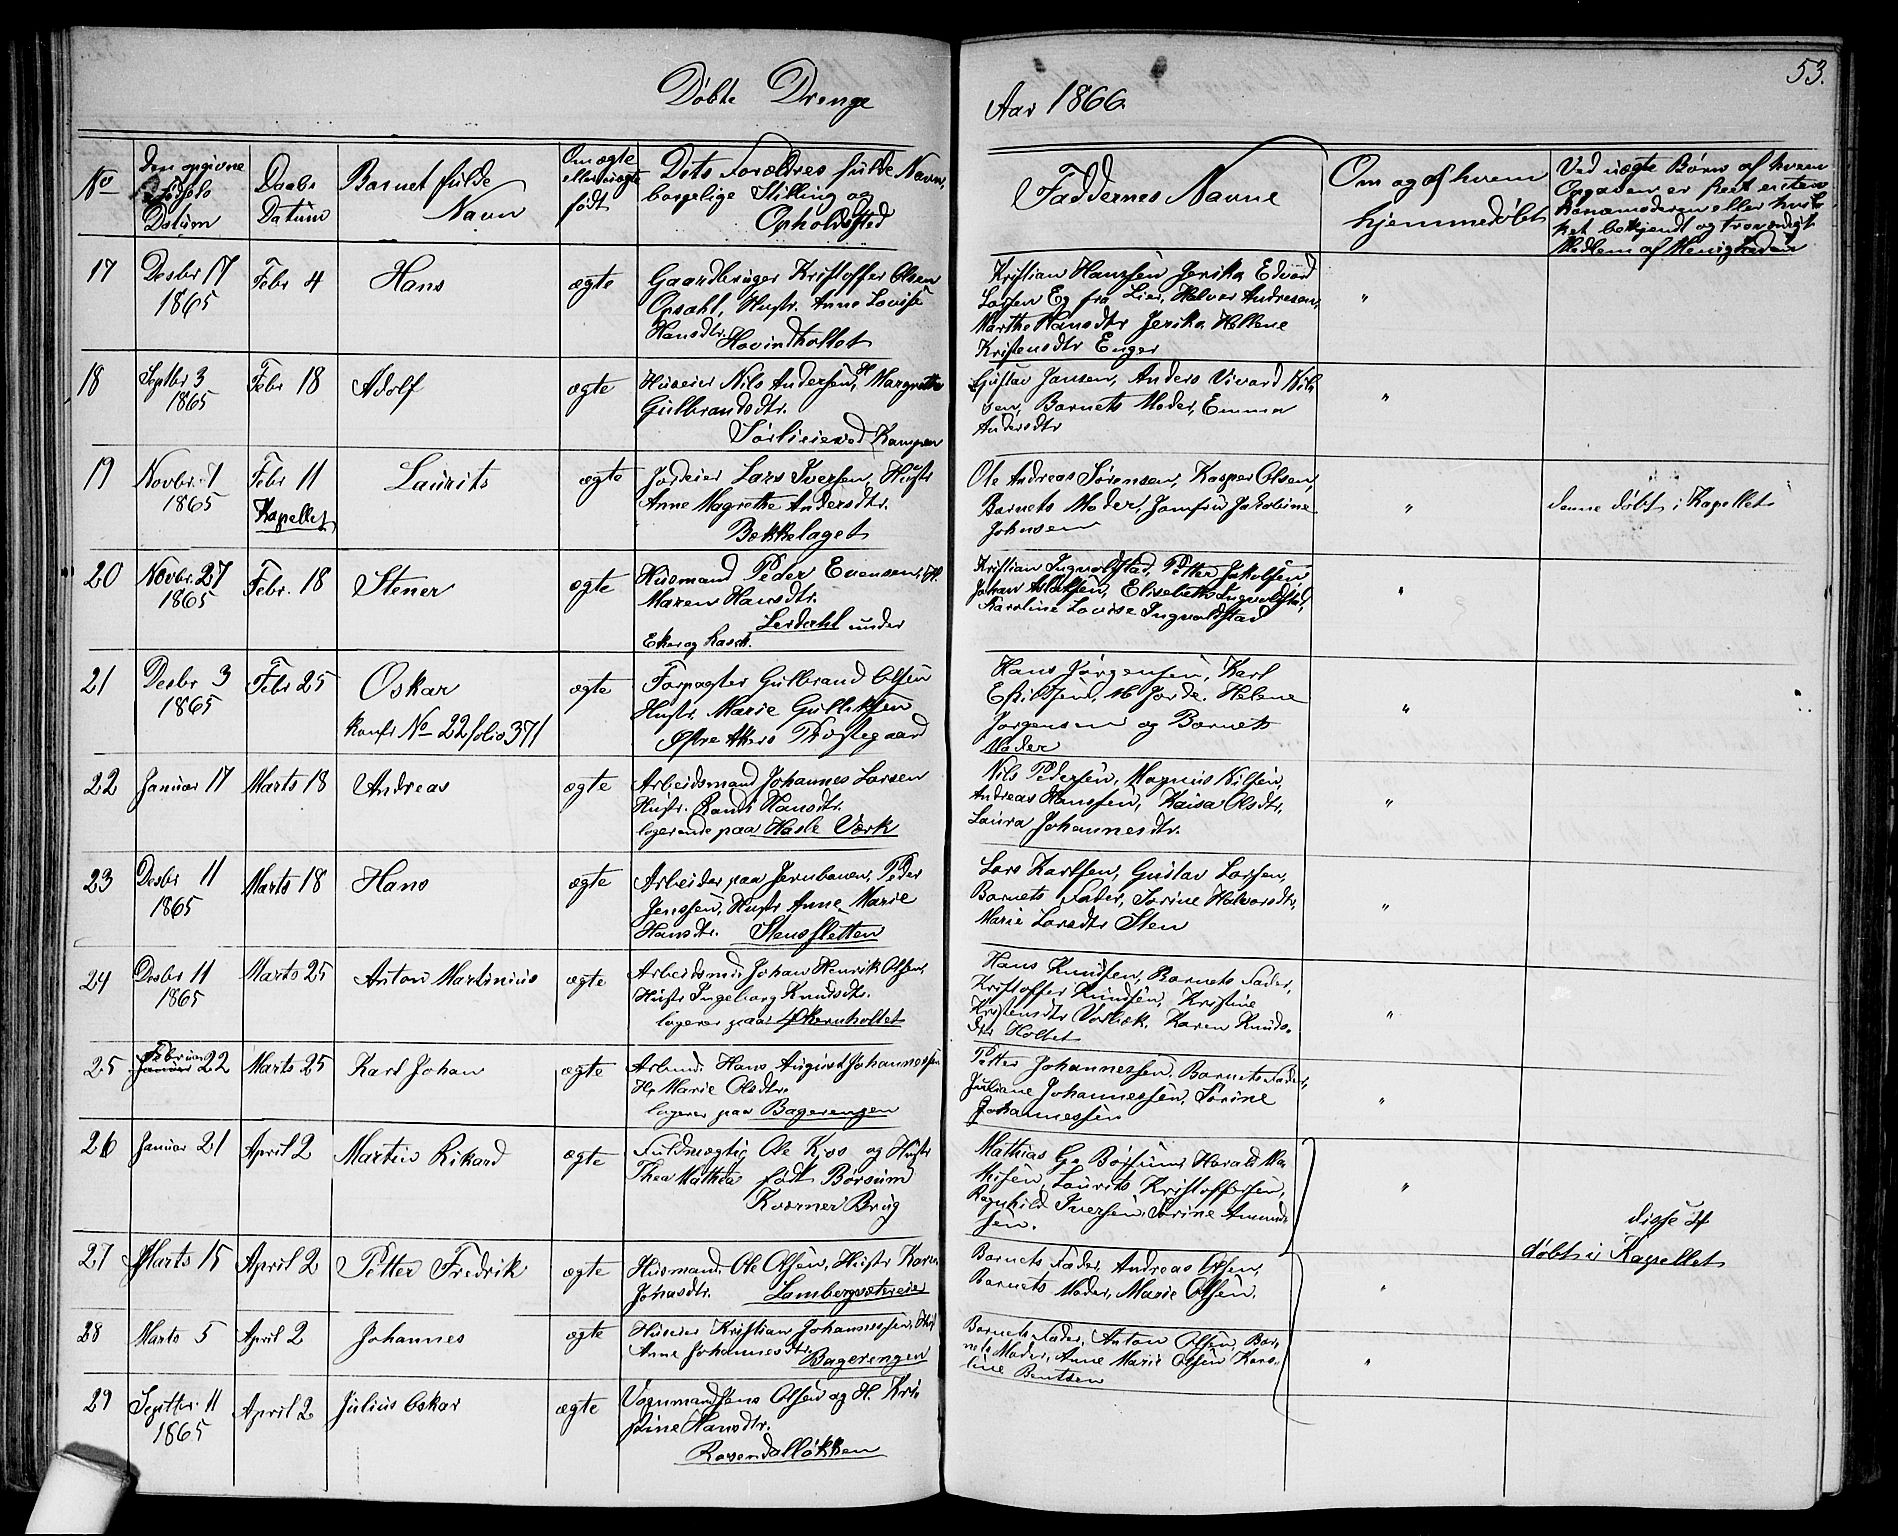 53.
Døbte Drenge
Aar 1866.
No
Den opgivne
Fødsels
Datum
Daabs
Datum
Barnet fulde
Navn
Om ægte
eller uægte
født
Dets Forældres fulde Navne,
borgelige Stilling og
Opholdssted
Faddernes Navne
Om og af hvem
hjemmedøbt
Ved uægte Børn af hvem
Opgaven er skeet enten
Konemoderen eller hvil-
ket bekjendt og troværdigt
Medlem af Menigheden
17
Desbr 17
1865
Febr 4
Hans
ægte
Gaardbruger Kristoffer Olsen
Opsahl, Hustr. Anne Lovise
Hansdtr. Hovindholtet
Kristian Hanssen Jeriko, Edvard
Larsen Eg fra Lier, Halvor Andresen,
Marthe Hansdtr Jeriko, Hellene
Kristensdtr Enger
"
18
Septbr 3
1865
Febr 18
Adolf
ægte
Huseier Nils Andersen, H. Margrethe
Gulbrandsdtr.
Sørlieie ved Kampen
Gustav Jansen, Anders Vivard Nil-
sen, Barnets Moder, Emma
Andersdtr
"
19
Novbr. 1
1865
Febr 11
Kapellet
Laurits
ægte
Jordeier Lars Iversen, Hustr
Anne Magrethe Andersdtr.
Bekkelaget
Ole Andreas Sørensen, Kasper Olsen,
Barnets Moder, Jomfru Jakobine
Johnsen
"
denne døbt i Kapellet
20
Novbr. 27
1865
Febr. 18
Stener
ægte
Husmand Peder Evensen, H.
Maren Hansdtr.
Lerdahl under
Eker og Rasch.
Kristian Ingvoldstad, Petter Jakobsen,
Johan Aslaksen, Elisabeth Ingvoldstad,
Karoline Lovise Ingvoldstad
"
21
Desbr 3
1865
Febr 25
Oskar
Konfr No 22 folio 371
ægte
Forpagter Gulbrand Olsen
Hustr. Marie Gulliksen
Østre Akers Præstegaard
Hans Jørgensen, Karl
Eskildsen, M Jorde, Helene
Jørgensen og Barnets
Moder
"
22
Januar 17
Marts 18
Andreas
ægte
Arbeidsmand Johannes Larsen
Hustr. Randi Hansdtr.
logerende paa Hasle Værk
Nils Pedersen, Magnus Nilsen,
Andreas Hanssen, Kaisa Olsdtr,
Laura Johannesdtr.
"
23
Desbr 11
1865
Marts 18
Hans
ægte
Arbeider paa Jernbanen, Peder
Jenssen, Hustr Anne Marie
Hansdtr. Stensletten
Lars Karlsen, Gustav Larsen,
Barnets Fader, Sørine Halvorsdtr,
Marie Larsdtr Sten
"
24
Desbr 11
1865
Marts 25
Anton Martinius
ægte
Arbeidsmd Johan Henrik Olsen,
Hustr Ingeborg Knudsdtr.
logerer paa Ekernholtet
Hans Knudsen, Barnets Fader,
Kristoffer Knudsen, Kristine
Kristensdtr Vosbæk, Karen Knuds-
dtr Holtet
"
25
Februar
Januar 22
Marts 25
Karl Johan
ægte
Arbmd. Hans August Johannessen
H. Marie Olsdtr.
logerer paa Bagerengen
Petter Johannessen, Barnets Fader,
Juliane Johannessen, Sørine
Johannessen
"
26
Januar 21
April 2
Martin Rikard
ægte
Fuldmægtig Ole Kjos og Hustr
Thea Mathea født Børsum
Kværner Brug
Mathias G. Børsum, Harald Ma-
thisen, Laurits Kristoffersen,
Ragnhild Iversen, Sørine Amund-
sen.
"
disse 4
døbt i Kapellet
27
Marts 15
April 2
Petter Fredrik
ægte
Husmand Ole Olsen, Hustr Karen
Johnsdtr. Lambersætereiet
Barnets Fader, Andreas Olsen,
Barnets Moder, Marie Olsen.
"
28
Marts 5
April 2
Johannes
ægte
Huseier Kristian Johannessen, Hus
Anne Johannesdtr. Bagerengen
Barnets Fader, Anton Olsen, Bar-
nets Moder, Anne Marie Olsen, Karo-
line Bentsen
"
29
Septbr. 11
1865
April 2
Julius Oskar
ægte
Vognmand Jens Olsen og H. Kri-
stine Hansdtr.
Rosendalløkken